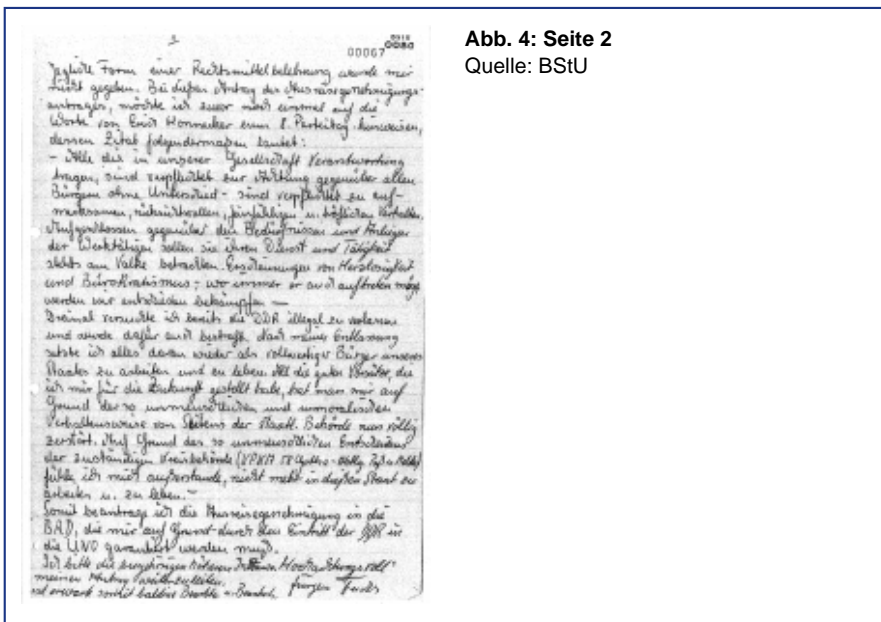 Abb. 4: Seite 2
Quelle: BStU
00067
0080
jegliche Form einer Rechtsmittelbelehrung wurde mir
nicht gegeben. Bei dießen Antrag des Ausreisegenehmigungs-
antrages, möchte ich zuvor noch einmal auf die
Worte von Erich Honnecker zum 8. Parteitag hinweisen,
dessen Zitat folgendermaßen lautet:
- Alle die in unserer Gesellschaft Verantwortung
tragen, sind verpflichtet zur Achtung gegenüber allen
Bürgern ohne Unterschied - sind verpflichtet zu auf-
merksamen, rücksichtvollen, feinfühligen u. höflichen Verhalten.
Aufgeschlossen gegenüber den Bedürfnissen und Anliegen
der Werktätigen sollen sie ihren Dienst und Tätigkeit
stehts am Volke betrachten. Erscheinungen von Herzlosigkeit
und Bürokratismus - wo immer er auch auftreten möge
werden wir entschieden bekämpfen —
Dreimal versuchte ich bereits die DDR illegal zu verlassen
und wurde dafür auch bestraft. Nach meiner Entlassung
setzte ich alles daran wieder als vollwertiger Bürger unseres
Staates zu arbeiten und zu leben. All die guten Vorsätze, die
ich mir für die Zukunft gestellt habe, hat man mir auf
Grund der so unmenschlichen und unmoralischen
Verhaltensweise von Seitens der Staatl. Behörde nun völlig
zerstört. Auf Grund des so unmenschlichen Entscheidens
der zuständigen Kreisbehörde (VPKA
fühle ich mich außerstande, nicht mehr in dießen Staat zu
arbeiten u. zu leben. -
Somit beantrage ich die Ausreisegenehmigung in die
BRD, die mir auf Grund durch den Eintritt der DDR in
die UNO garantiert werden muß.
Ich bitte die Hochachtungsvoll
meinen Antrag weiterzuleiten. Jürgen Fuchs
und erwarte somit baldige